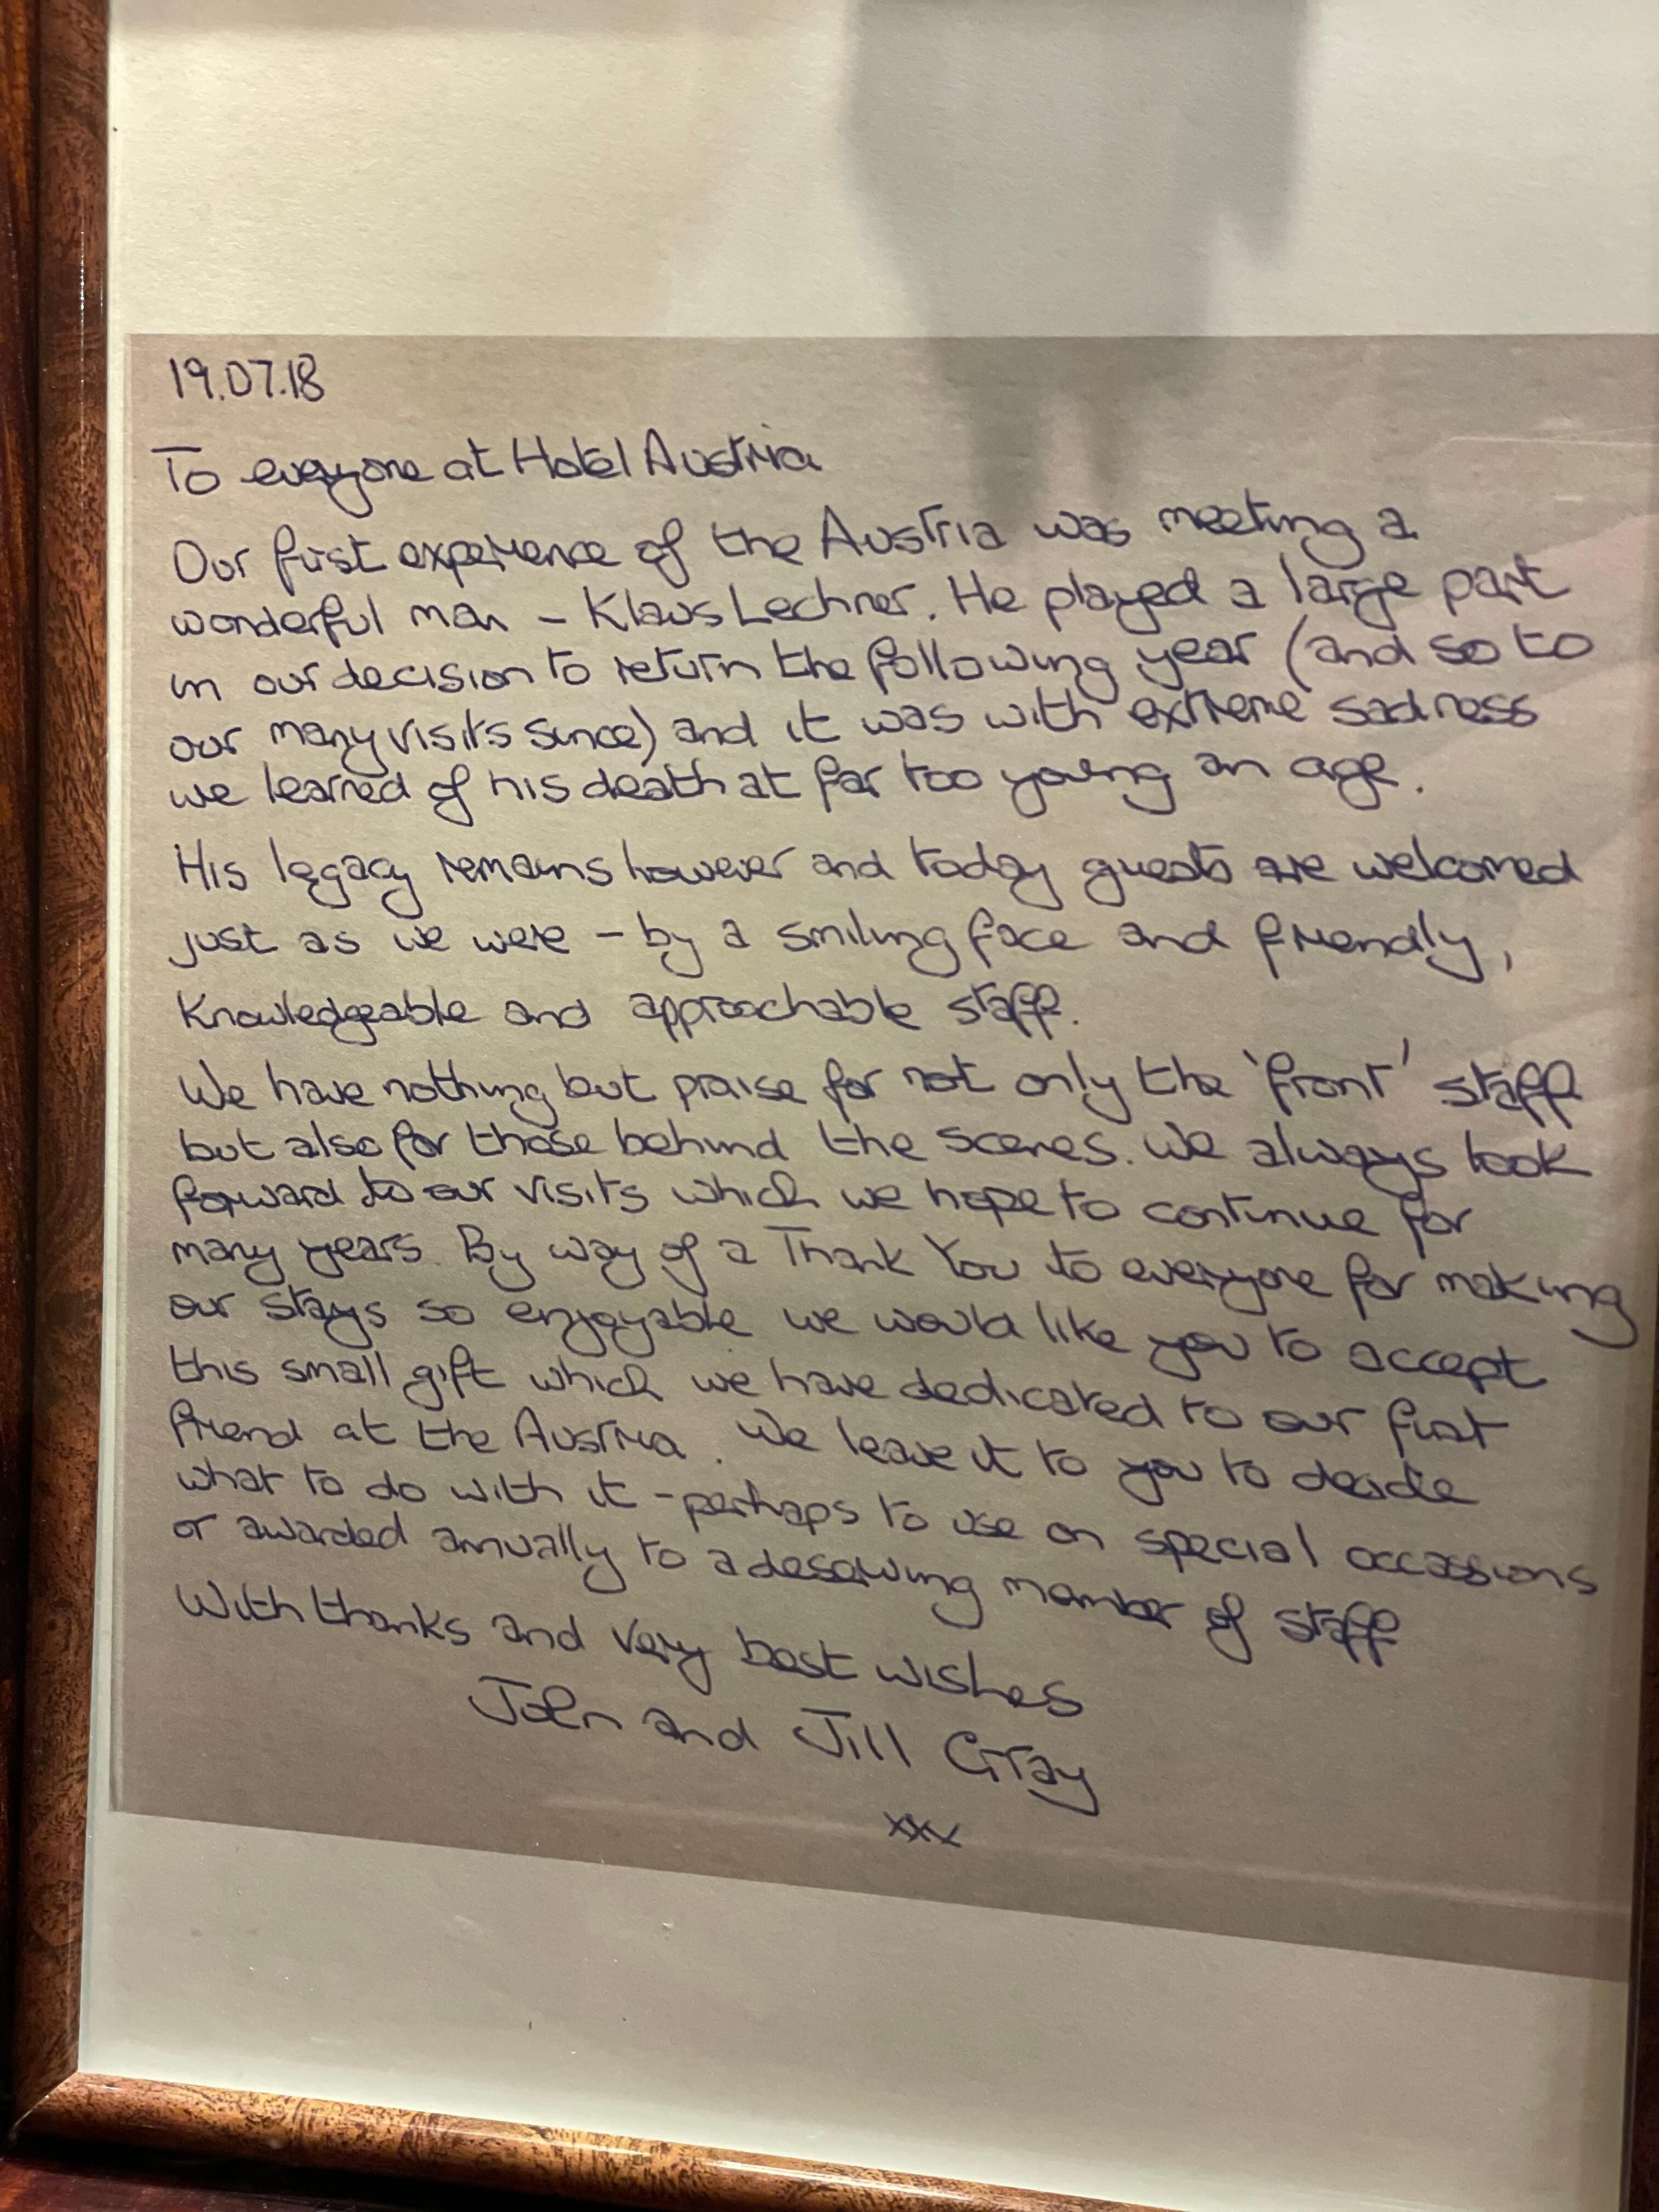 19.07.18
To everyone at Hotel Austria
Our first experience of the Austria was meeting a
wonderful man – Klaus Lechner. He played a large part
in our decision to return the following year (and so to
our many visits since) and it was with extreme sadness
we learned of his death at far too young an age.
His legacy remains however and today guests are welcomed
just as we were – by a smiling face and friendly,
knowledgeable and approachable staff.
We have nothing but praise for not only the 'front' staff
but also for those behind the scenes. We always look
forward to our visits which we hope to continue for
many years. By way of a Thank You to everyone for making
our stays so enjoyable we would like you to accept
this small gift which we have dedicated to our first
friend at the Austria. We leave it to you to decide
what to do with it – perhaps to use on special occassions
or awarded annually to a deserving member of staff
With thanks and very best wishes
John and Jill Gray
xxx